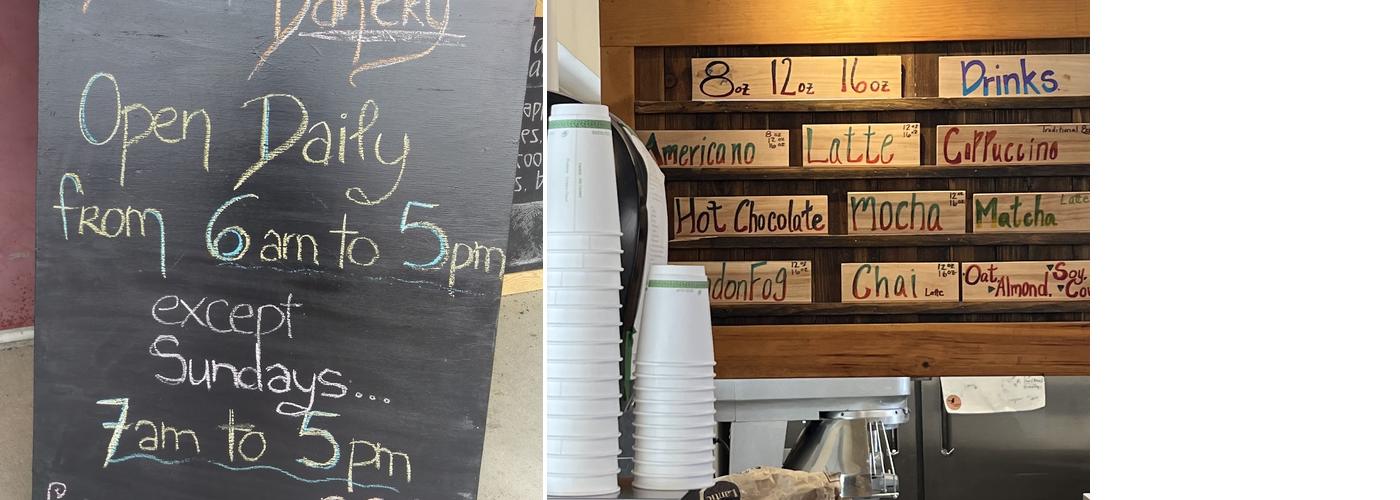 Bakery
Open Daily
from 6am to 5pm
except
Sundays...
7am to 5pm
8oz 12oz 16oz
Drinks
Americano 8oz 12oz 16oz
Latte 12oz 16oz
Cappuccino Traditional
Hot Chocolate
Mocha 12oz 16oz
Matcha Latte
donFog 12oz 16oz
Chai Latte 12oz 16oz
Oat. Soy.
Almond. Co